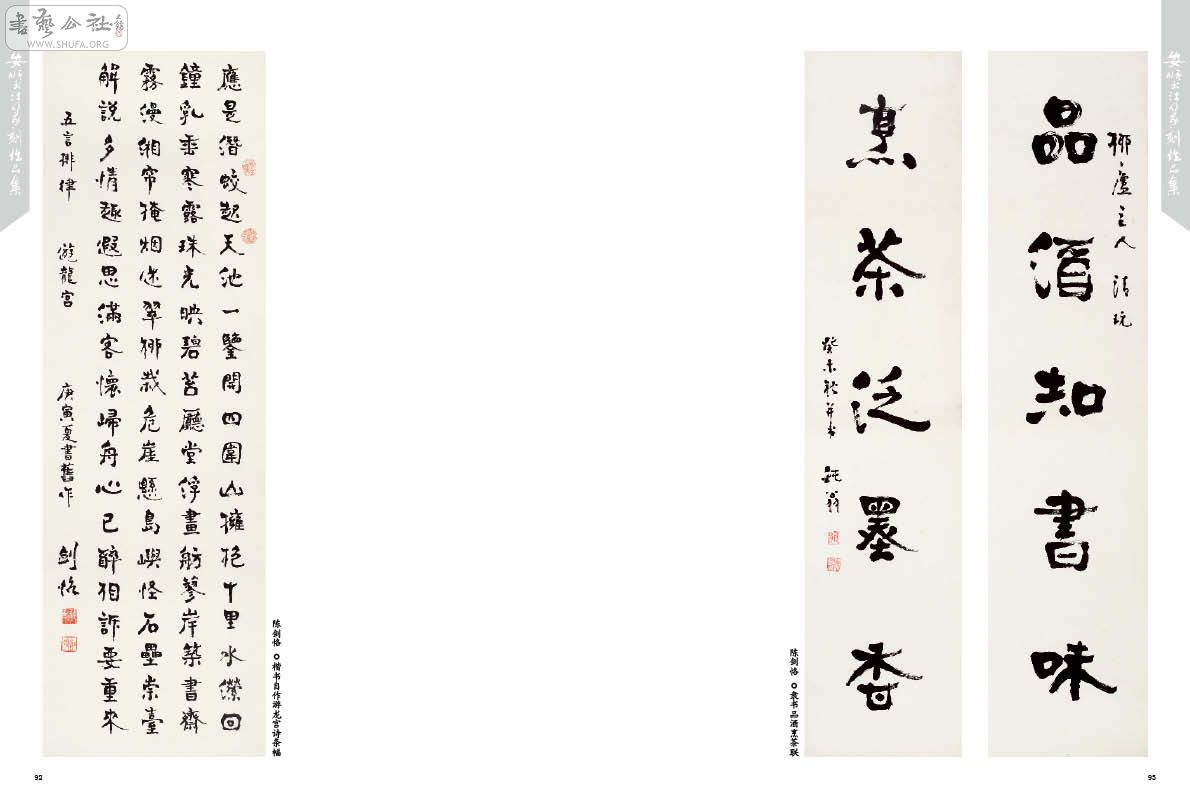 書藝公社
WWW.SHUFA.ORG
安順书法篆刻作品集
應是潛蛟起天池一鑒開四圍山擁抱十里水縈回
鐘乳垂寒露珠光映碧苔廳堂浮畫舫蓼岸築書齋
霧漫緗帘掩烟迷翠柳栽危崖懸島嶼怪石壘崇臺
解說多情趣遐思滿客懷歸舟心已醉相訴要重來
五言排律 遊龍宮 庚寅夏書舊作 劍恪
陈剑恪 楷书自作游龙宫诗条幅
92
安順书法篆刻作品集
柳廬主人 清玩
品酒知書味
烹茶泛墨香
癸未秋并书 鈍翁
陈剑恪 隶书品酒烹茶联
93